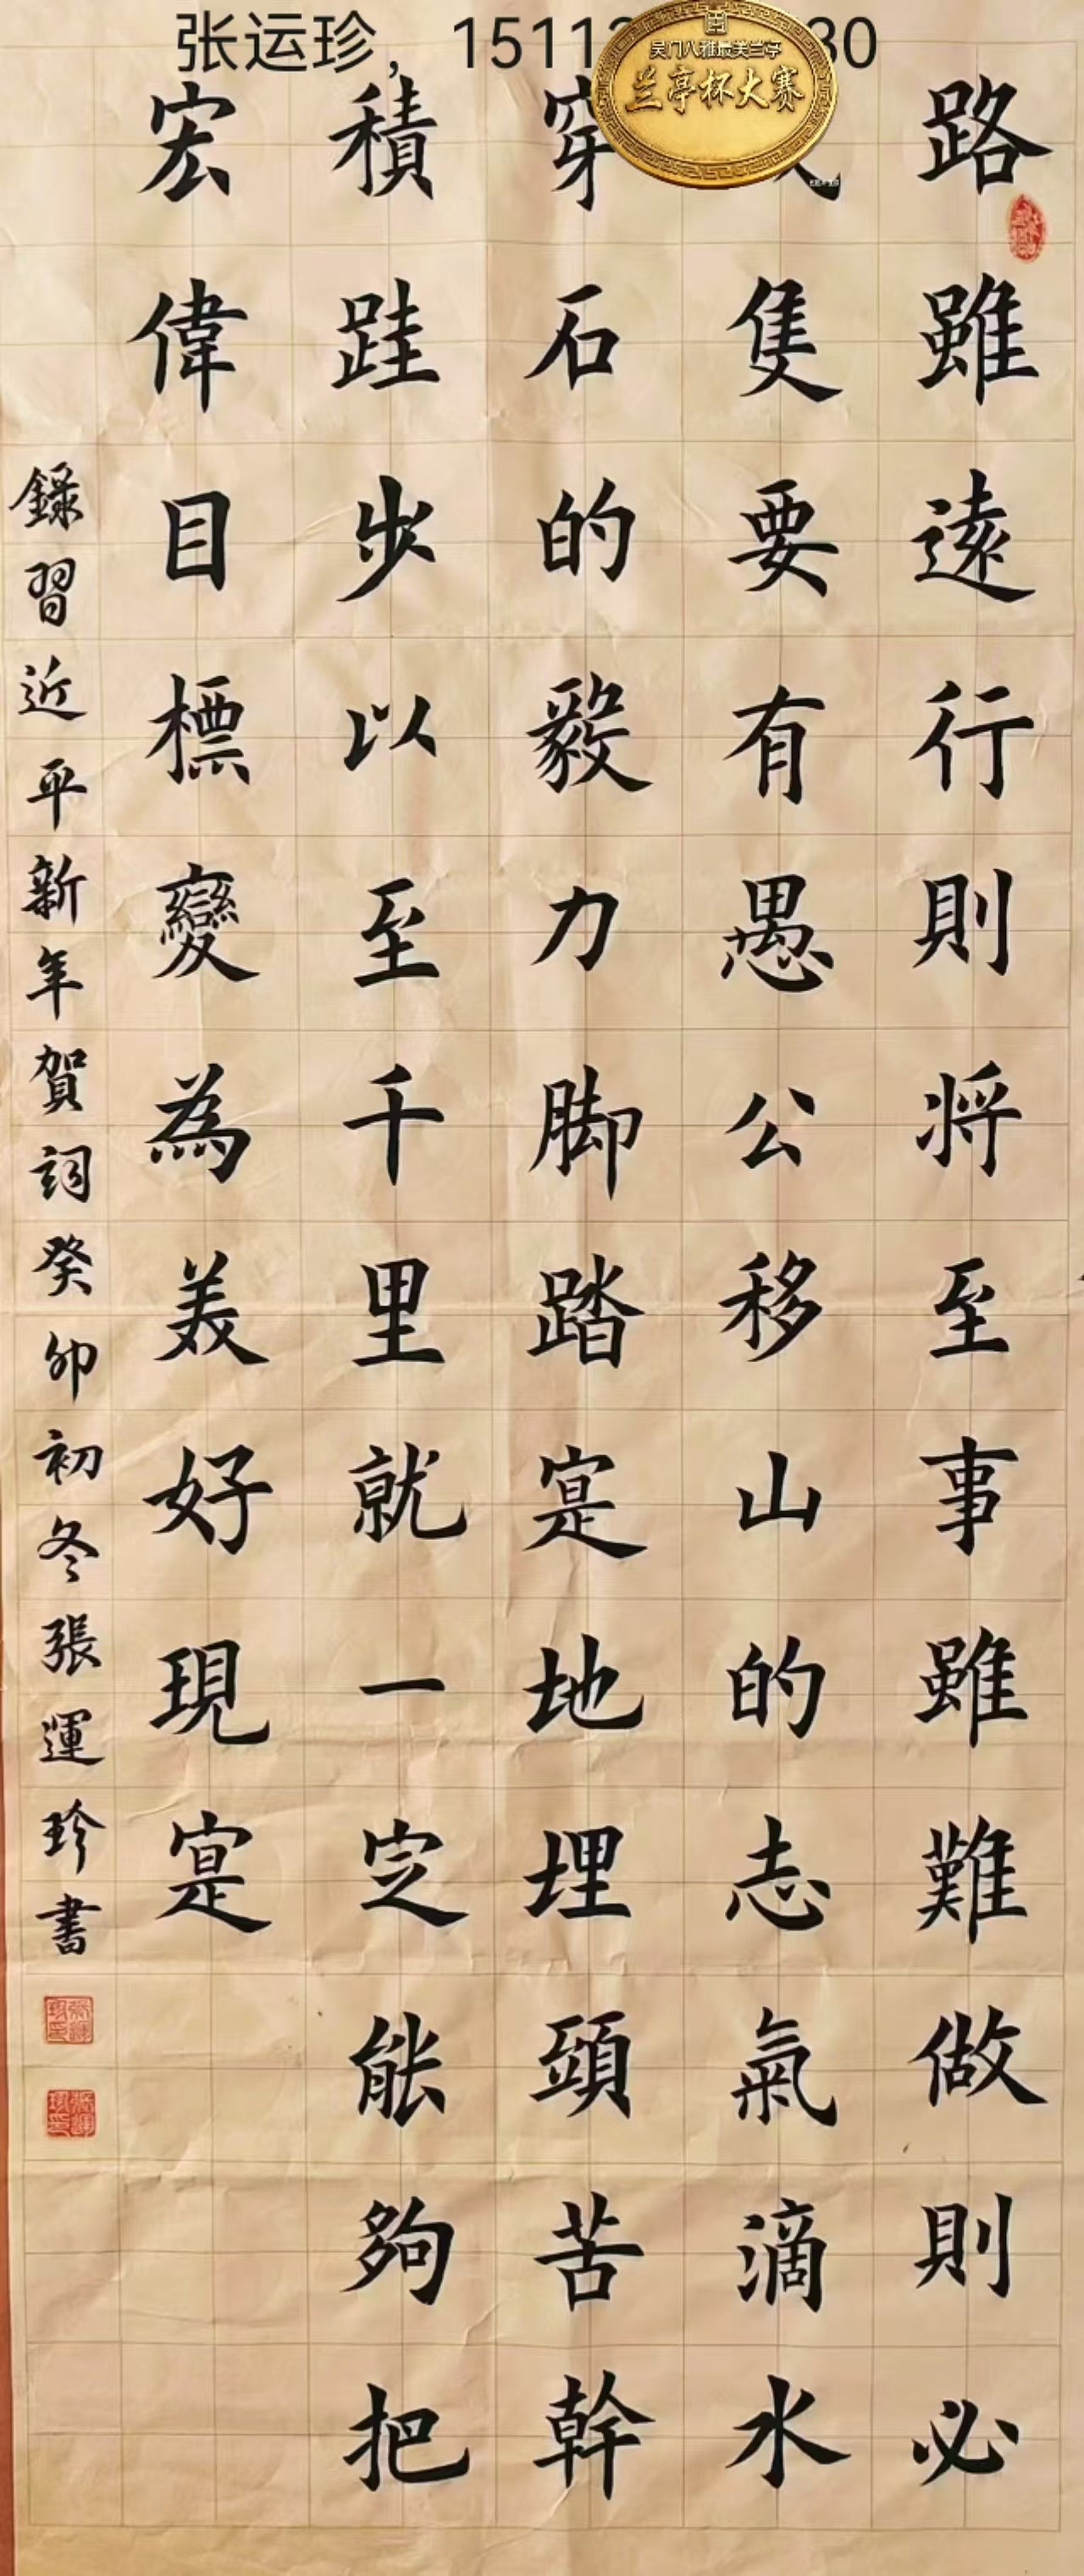 张运珍，1511 30
吴门八雅最美兰亭
兰亭杯大赛
路雖遠行則將至事雖難做則必
隻要有愚公移山的志氣滴水
穿石的毅力脚踏寔地埋頭苦幹
積跬步以至千里就一定能夠把
宏偉目標變為美好現寔
錄習近平新年賀詞癸卯初冬張運珍書